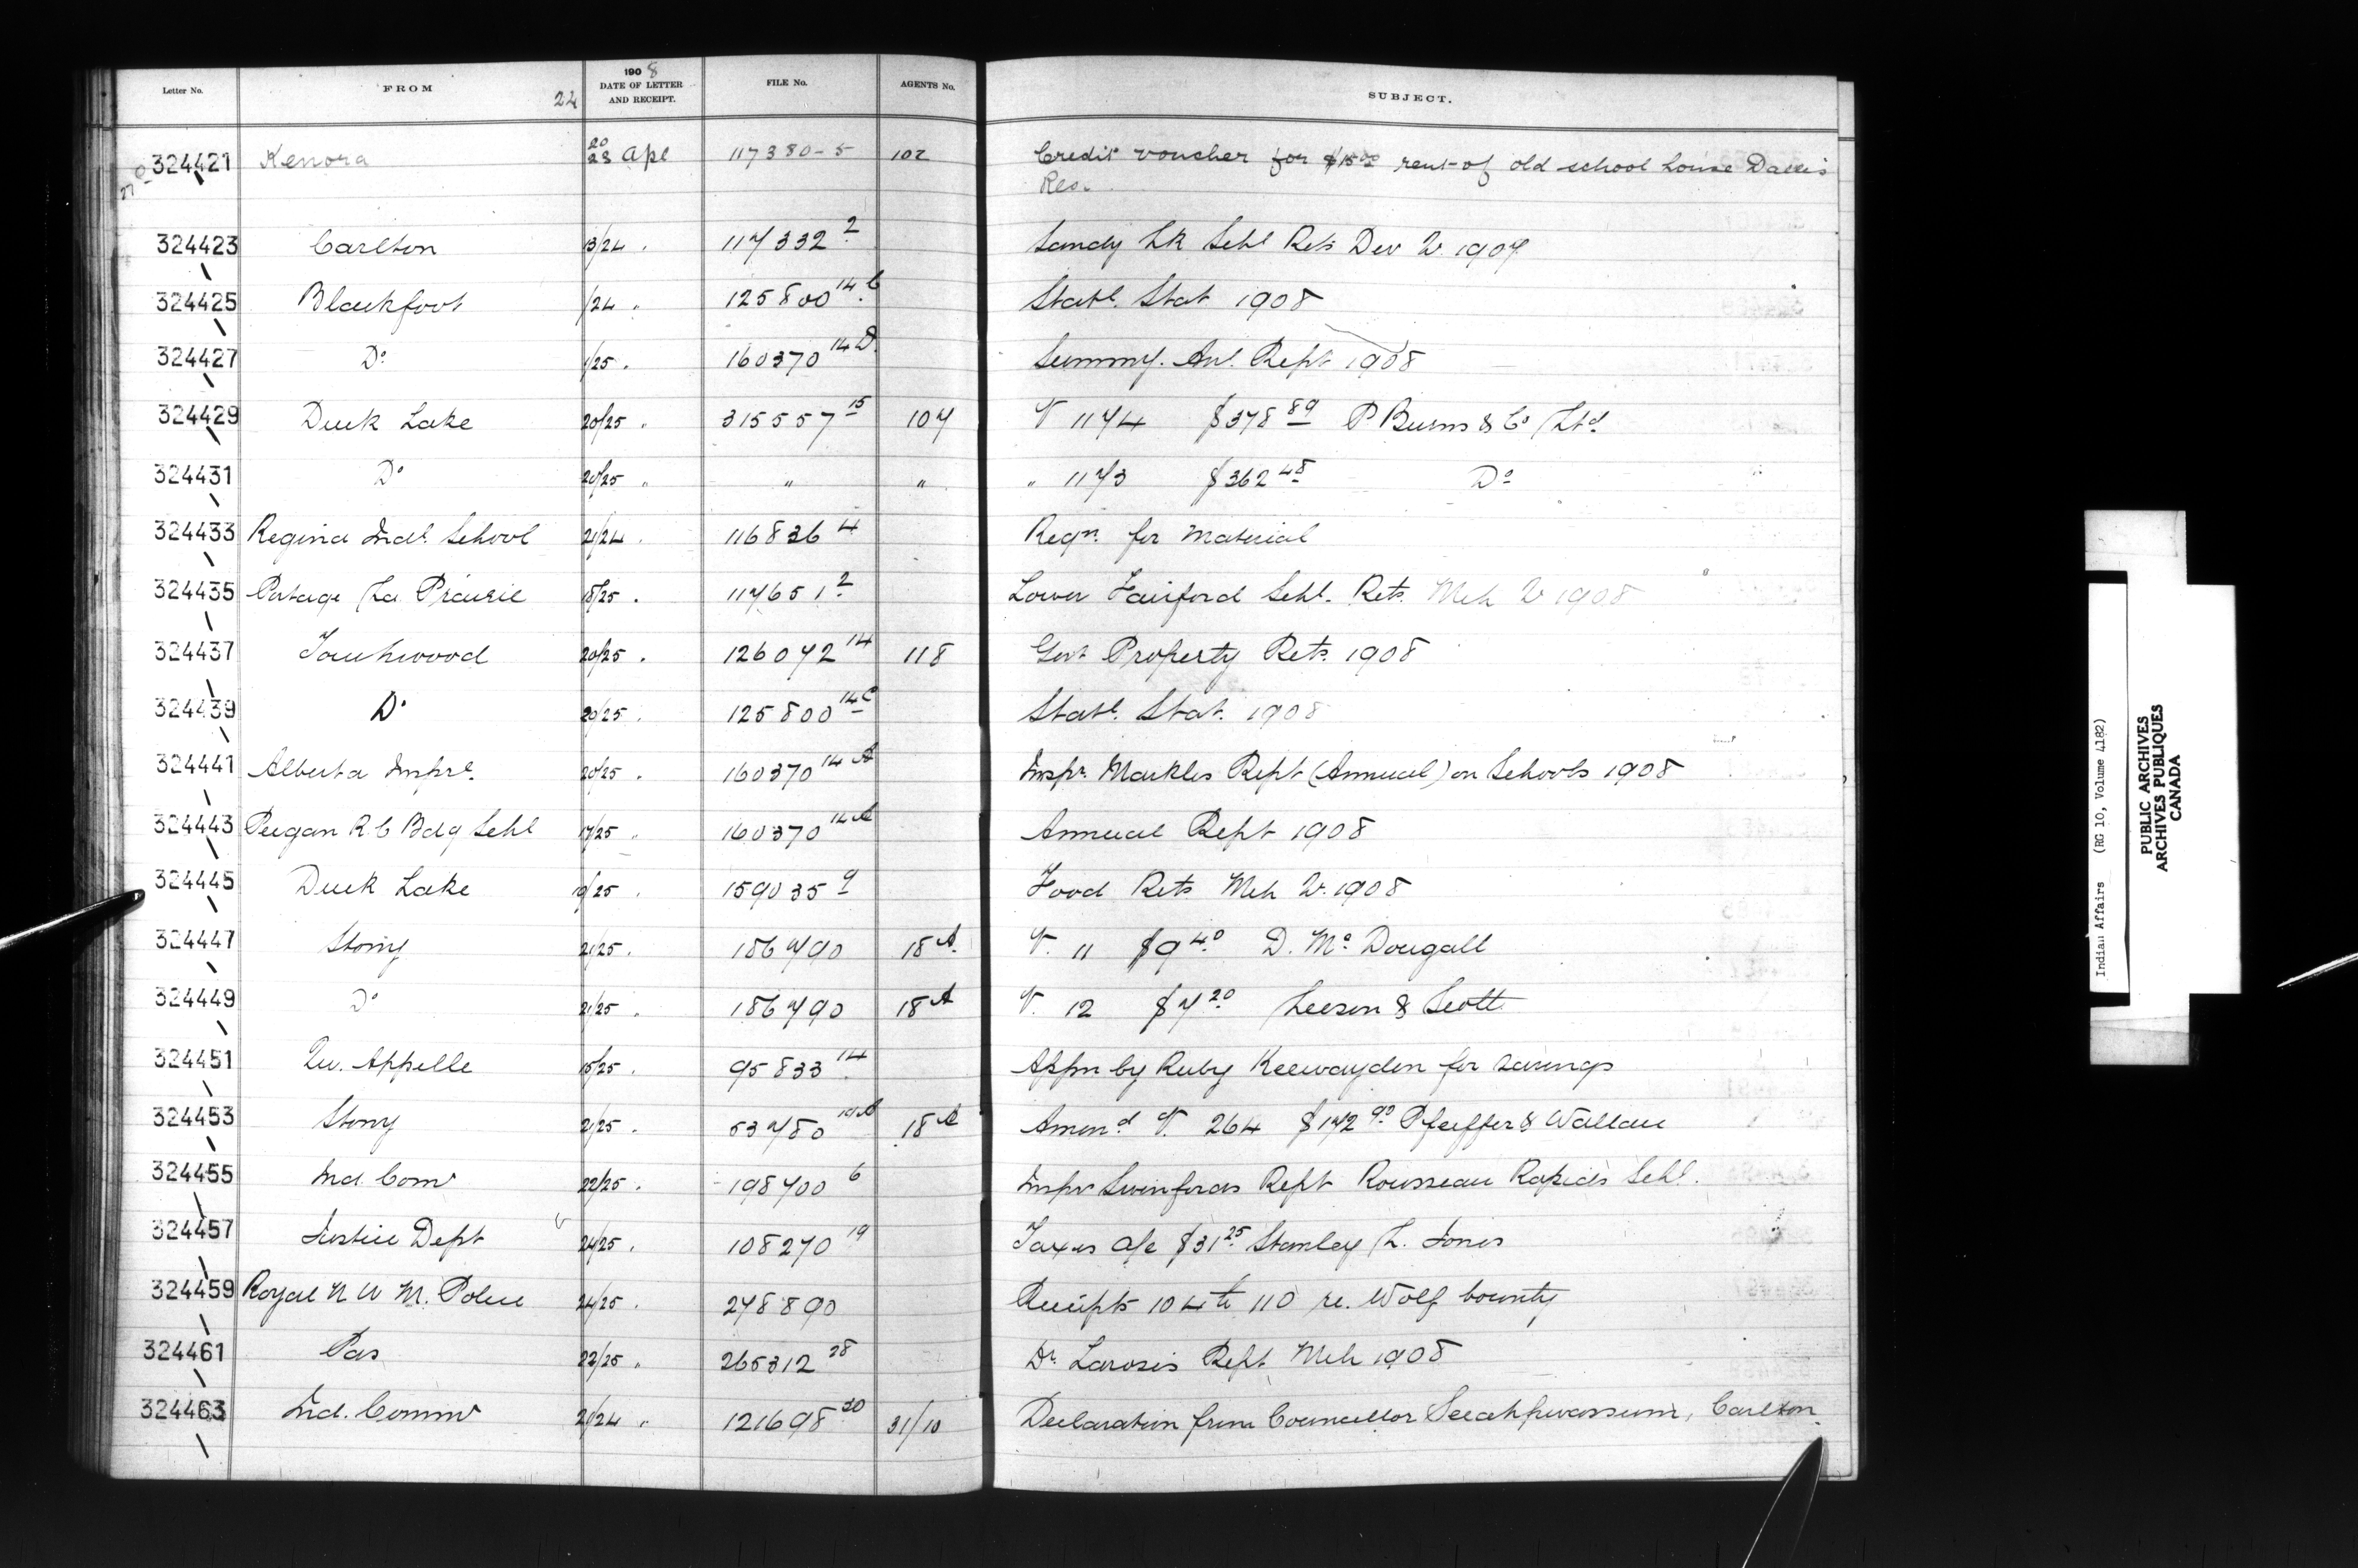 Letter No. FROM 22 1908 DATE OF LETTER AND RECEIPT. FILE No. AGENTS No. SUBJECT.
324421 Kenora 20/23 Apl 117380-5 102 Credit voucher for $15.00 rent of old school house Dalles
Res.
324423 Carlton 13/24 . 117332 2 Sandy Lk Schl Rets Dec Qr. 1907
324425 Blackfoot /24 " 125800 14C Statl. Stat. 1908
324427 Do 1/25 . 160370 14D Summy. Anl. Rept 1908
324429 Duck Lake 20/25 " 315557 15 107 V 1174 $378 89 P Burns & Co Ltd
324431 Do 20/25 " " " " 1173 $362 48 Do
324433 Regina Indl. School 21/24 . 116836 4 Reqn. for Material
324435 Portage La Prairie 18/25 . 117651 2 Lower Fairford Schl. Rets. Mch Qr 1908
324437 Touchwood 20/25 . 126072 14 118 Govt Property Rets. 1908
324439 Do 20/25 . 125800 14C Statl. Stat. 1908
324441 Alberta Inspre. 20/25 . 160370 14A Inspr. Markles Rept (Annual) on Schools 1908
324443 Peigan R.C Bdg Schl 17/25 " 160370 14A Annual Rept 1908
324445 Duck Lake 19/25 . 159035 9 Food Rets Mch Qr. 1908
324447 Stony 21/25 . 186790 18A. V. 11 $9 40 D. Mc Dougall
324449 Do 21/25 . 186790 18A V. 12 $7 20 Leeson & Scott
324451 Qu. Appelle 15/25 . 95833 14 Appn by Ruby Keewayden for savings
324453 Stony 21/25 . 53780 18A Amend V. 264 $172 90 Pfeiffer & Wallace
324455 Ind. Comr 22/25 . 198700 6 Inspr Swinfords Rept Rousseau Rapids Schl.
324457 Justice Dept 24/25 . 108270 19 Taxes a/c $31 25 Stanley L. Jones
324459 Royal N W M. Police 24/25 . 278890 Receipts 104 to 110 re. Wolf bounty
324461 Pas 22/25 " 265312 28 Dr. Laroses Rept. Mch 1908
324463 Ind. Commr 21/24 " 121698 30 31/10 Declaration from Councellor Seeahpwassum, Carlton
Indian Affairs (RG 10, Volume 4182)
PUBLIC ARCHIVES
ARCHIVES PUBLIQUES
CANADA